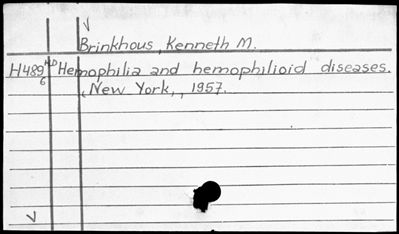 Brinkhous, Kenneth M.
H489 HD Hemophilia and hemophilioid diseases.
6 New York, 1957.